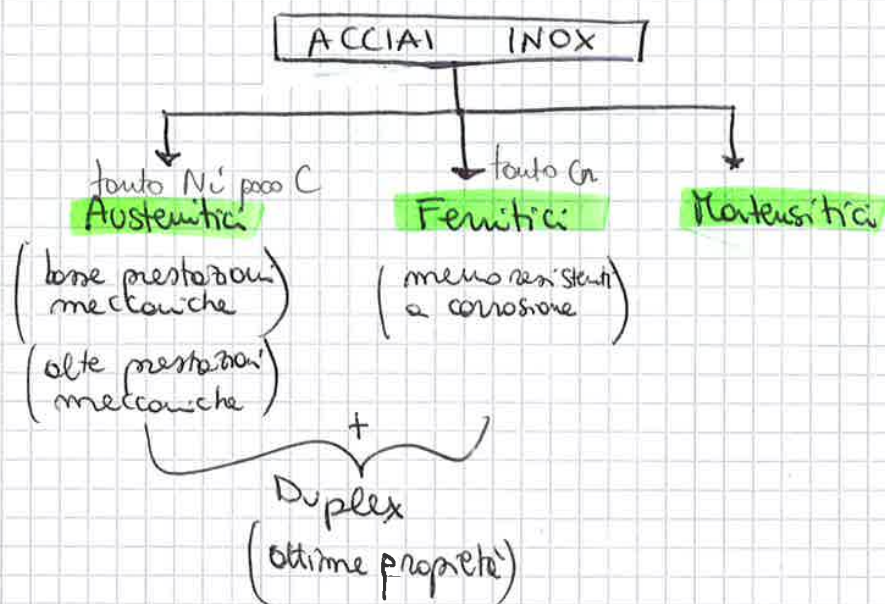 ACCIAI INOX
tanto Ni poco C
Austenitici
(basse prestazioni
meccaniche)
(alte prestazioni
meccaniche)
tanto Cr
Ferritici
(meno resistenti
a corrosione)
Martensitici
+
Duplex
(ottime proprietà)